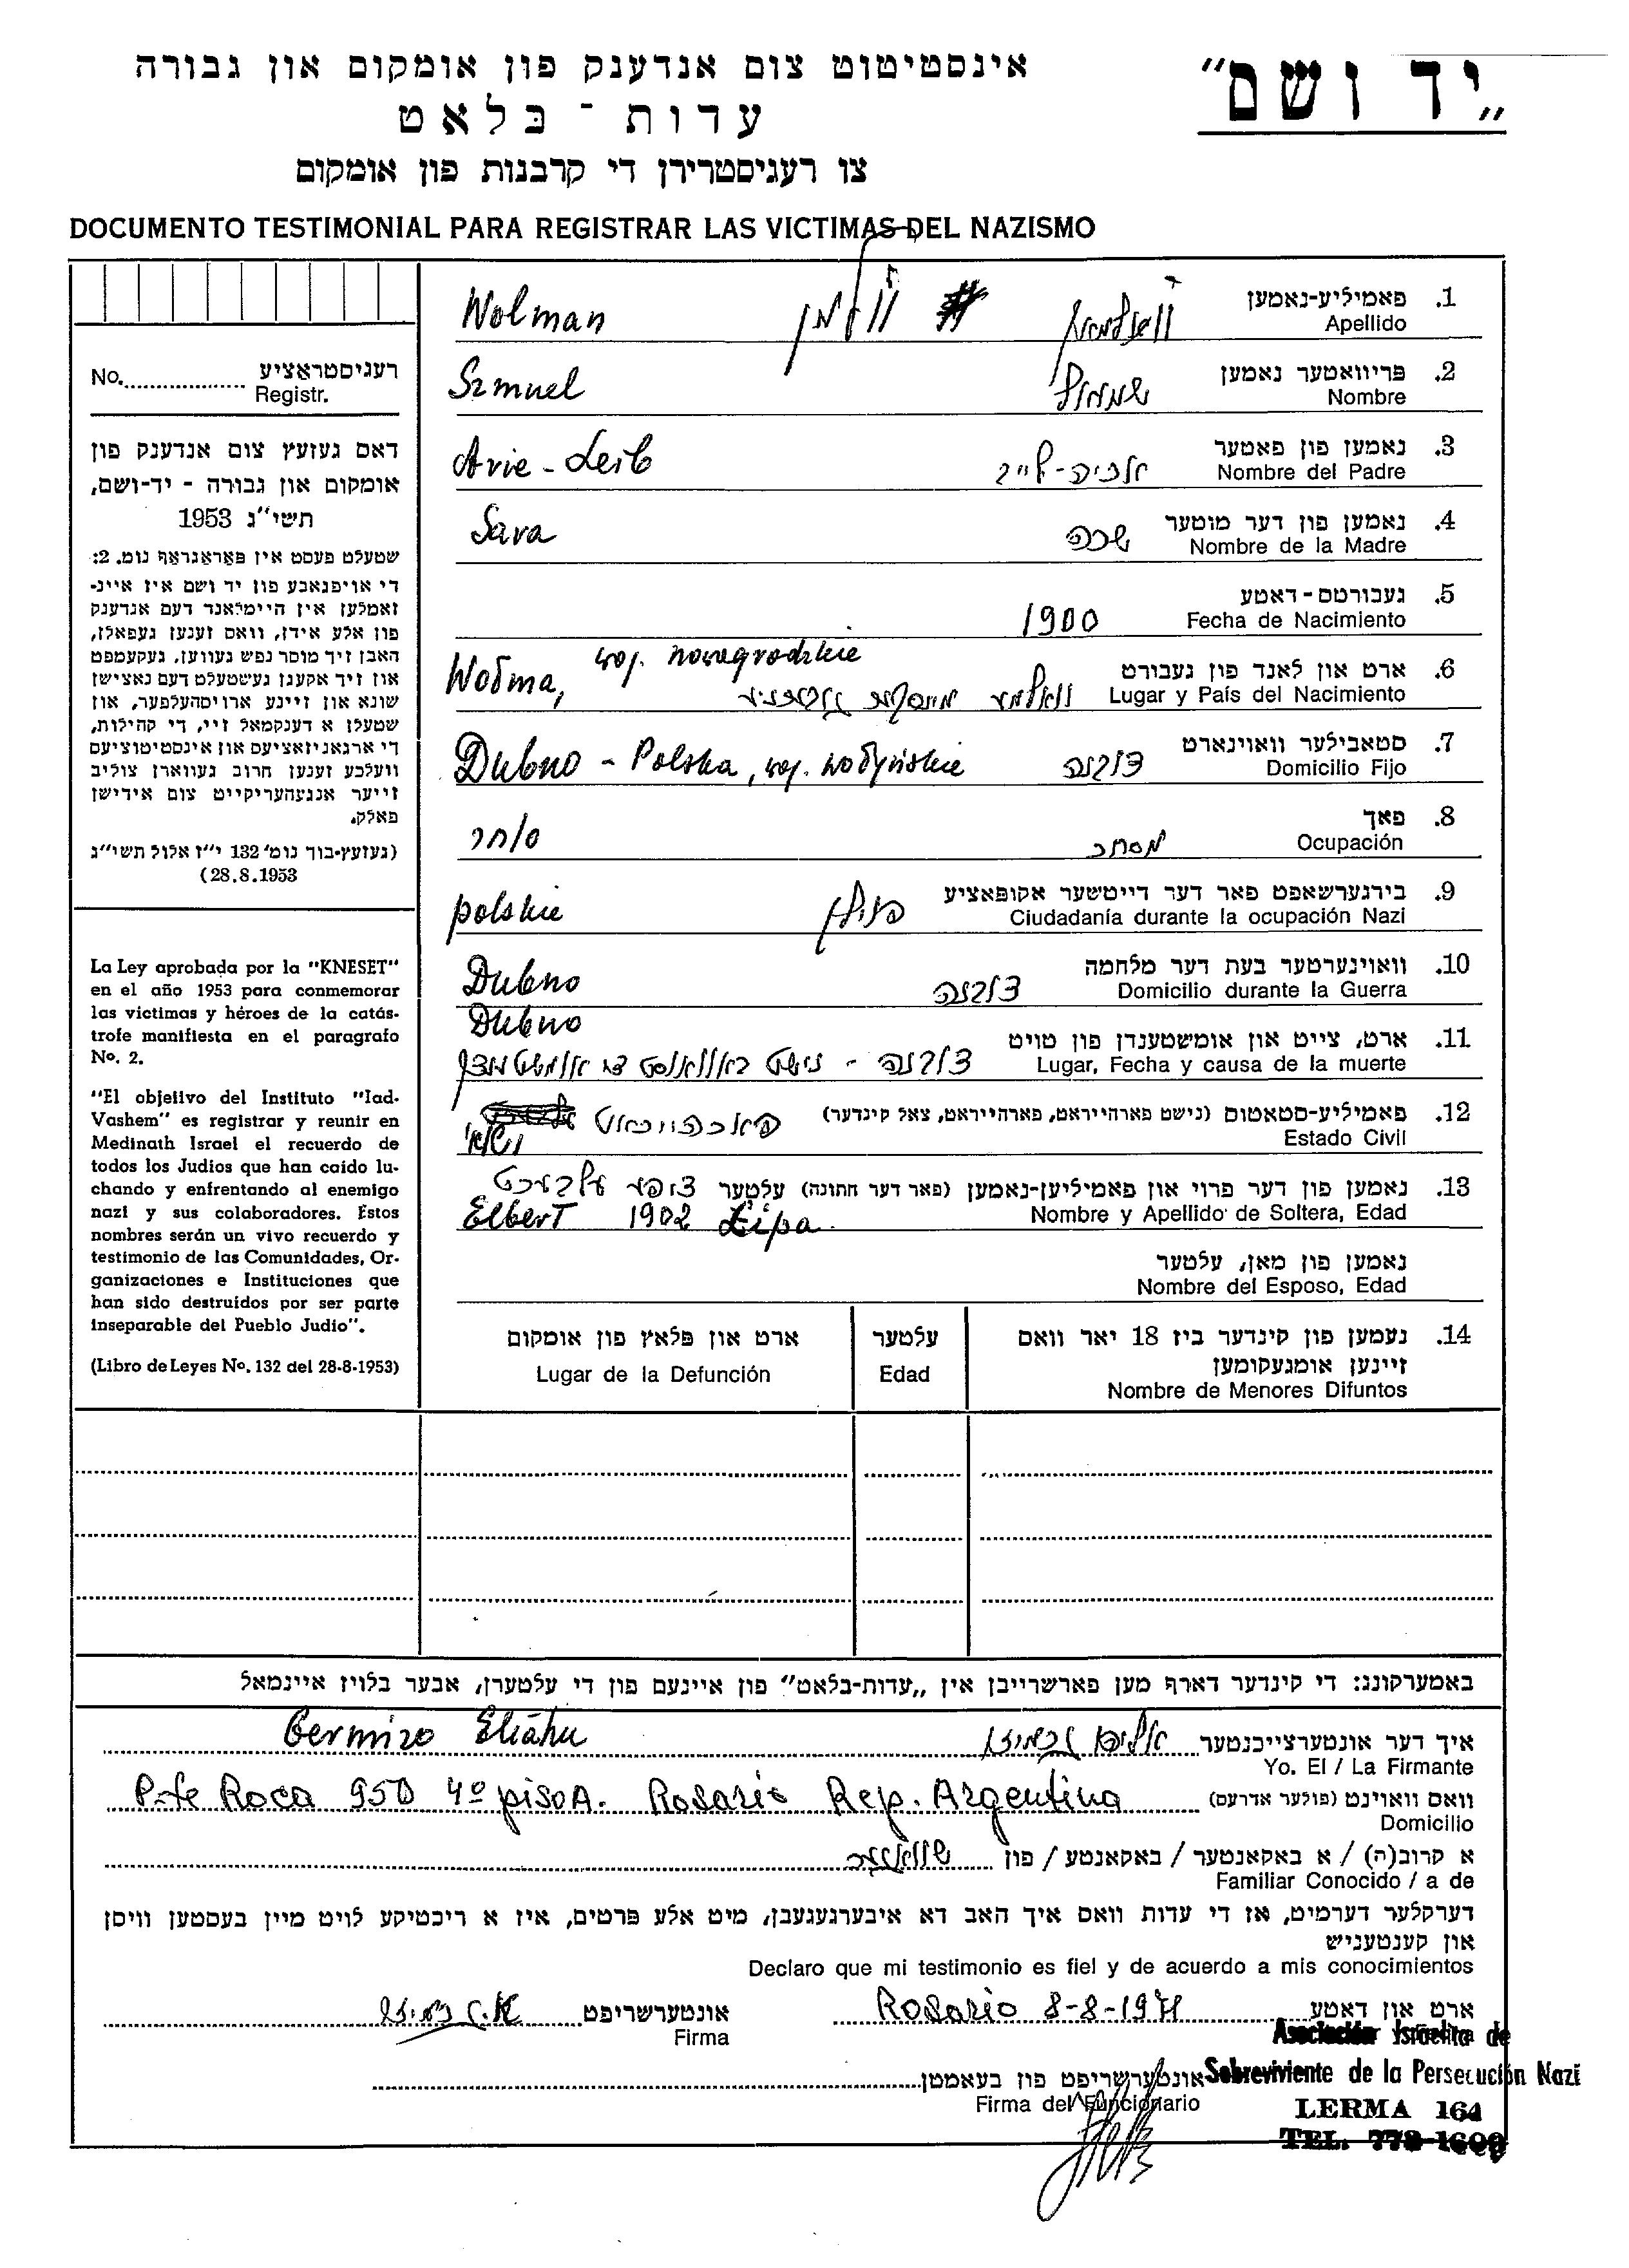 „יד ושם"
אינסטיטוט צום אנדענק פון אומקום און גבורה
עדות־בלאט
צו רעגיסטרירן די קרבנות פון אומקום
DOCUMENTO TESTIMONIAL PARA REGISTRAR LAS VICTIMAS DEL NAZISMO
No. רעגיסטראציע
Registr.
דאס געזעץ צום אנדענק פון
אומקום און גבורה - יד-ושם,
תשי"ג 1953
שטעלט פעסט אין פאראגראף נומ. 2:
די אויפגאבע פון יד ושם איז איינ-
זאמלען אין היימלאנד דעם אנדענק
פון אלע אידן, וואס זענען געפאלן,
האבן זיך מוסר נפש געווען, געקעמפט
און זיך אקעגן געשטעלט דעם נאצישן
שונא און זיינע ארויסהעלפער, און
שטעלן א דענקמאל זיי, די קהילות,
די ארגאניזאציעס און אינסטיטוציעס
וועלכע זענען חרוב געווארן צוליב
זייער אנגעהעריקייט צום אידישן
פאלק.
(געזעץ-בוך נומ' 132 י"ז אלול תשי"ג
28.8.1953)
La Ley aprobada por la "KNESET"
en el año 1953 para conmemorar
las victimas y héroes de la catás-
trofe manifiesta en el paragrafo
Nº. 2.
"El objetivo del Instituto "Iad-
Vashem" es registrar y reunir en
Medinath Israel el recuerdo de
todos los Judios que han caido lu-
chando y enfrentando al enemigo
nazi y sus colaboradores. Estos
nombres serán un vivo recuerdo y
testimonio de las Comunidades, Or-
ganizaciones e Instituciones que
han sido destruidos por ser parte
inseparable del Pueblo Judio".
(Libro de Leyes Nº. 132 del 28-8-1953)
1. פאמיליע-נאמען
Apellido
Wolman וולמן
2. פריוואטער נאמען
Nombre
Szmuel שמואל
3. נאמען פון פאטער
Nombre del Padre
Arie-Leib אריה-לייב
4. נאמען פון דער מוטער
Nombre de la Madre
Sara שרה
5. געבורטס-דאטע
Fecha de Nacimiento
1900
6. ארט און לאנד פון געבורט
Lugar y País del Nacimiento
Wołma, woj. nowogrodzkie
7. סטאבילער וואוינארט
Domicilio Fijo
Dubno - Polska, woj. wołyńskie דובנה
8. פאך
Ocupación
סוחר מסחר
9. בירגערשאפט פאר דער דייטשער אקופאציע
Ciudadanía durante la ocupación Nazi
polskie פוילן
10. וואוינערטער בעת דער מלחמה
Domicilio durante la Guerra
Dubno דובנה
11. ארט, צייט און אומשטענדן פון טויט
Lugar, Fecha y causa de la muerte
Dubno
דובנה - נישט באוואוסט די אומשטענדן
12. פאמיליע-סטאטוס (נישט פארהייראט, פארהייראט, צאל קינדער)
Estado Civil
פארהייראט
13. נאמען פון דער פרוי און פאמיליען-נאמען (פאר דער חתונה) עלטער
Nombre y Apellido de Soltera, Edad
ציפה אלבערט
Elbert 1902 Zipa
נאמען פון מאן, עלטער
Nombre del Esposo, Edad
14. נעמען פון קינדער ביז 18 יאר וואס
זיינען אומגעקומען
Nombre de Menores Difuntos
עלטער
Edad
ארט און פלאץ פון אומקום
Lugar de la Defunción
באמערקונג: די קינדער דארף מען פארשרייבן אין „עדות-בלאט" פון איינעם פון די עלטערן, אבער בלויז איינמאל
איך דער אונטערצייכנטער אליהו גרמיזו
Germizo Eliahu
Yo. El / La Firmante
וואס וואוינט (פולער אדרעס)
Pte Roca 950 4º piso A. Rosario Rep. Argentina
Domicilio
א קרוב(ה) / א באקאנטער / באקאנטע / פון שוואגער
Familiar Conocido / a de
דערקלער דערמיט, אז די עדות וואס איך האב דא איבערגעגעבן, מיט אלע פרטים, איז א ריכטיקע לויט מיין בעסטען וויסן
און קענטעניש
Declaro que mi testimonio es fiel y de acuerdo a mis conocimientos
ארט און דאטע Rosario 8-8-1971
אונטערשריפט
Firma
אונטערשריפט פון בעאמטן
Firma del Funcionario
Asociación Israelita de
Sobreviviente de la Persecución Nazi
LERMA 164
TEL. 773-1600